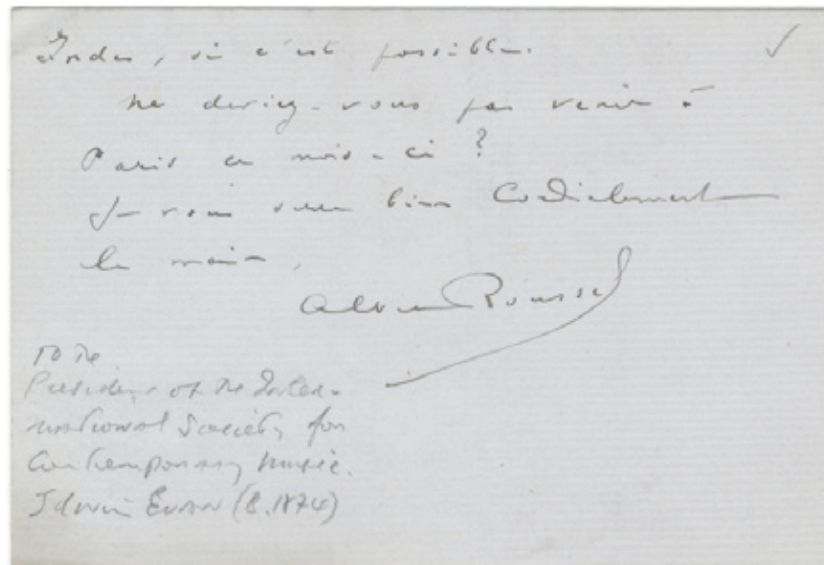 , si c'est possible.
ne deviez-vous pas venir à
Paris ce mois-ci ?
Je vous serre bien cordialement
la main,
Albert Roussel
To the
President of the Inter-
national Society for
Contemporary Music.
Edwin Evans (B. 1874)